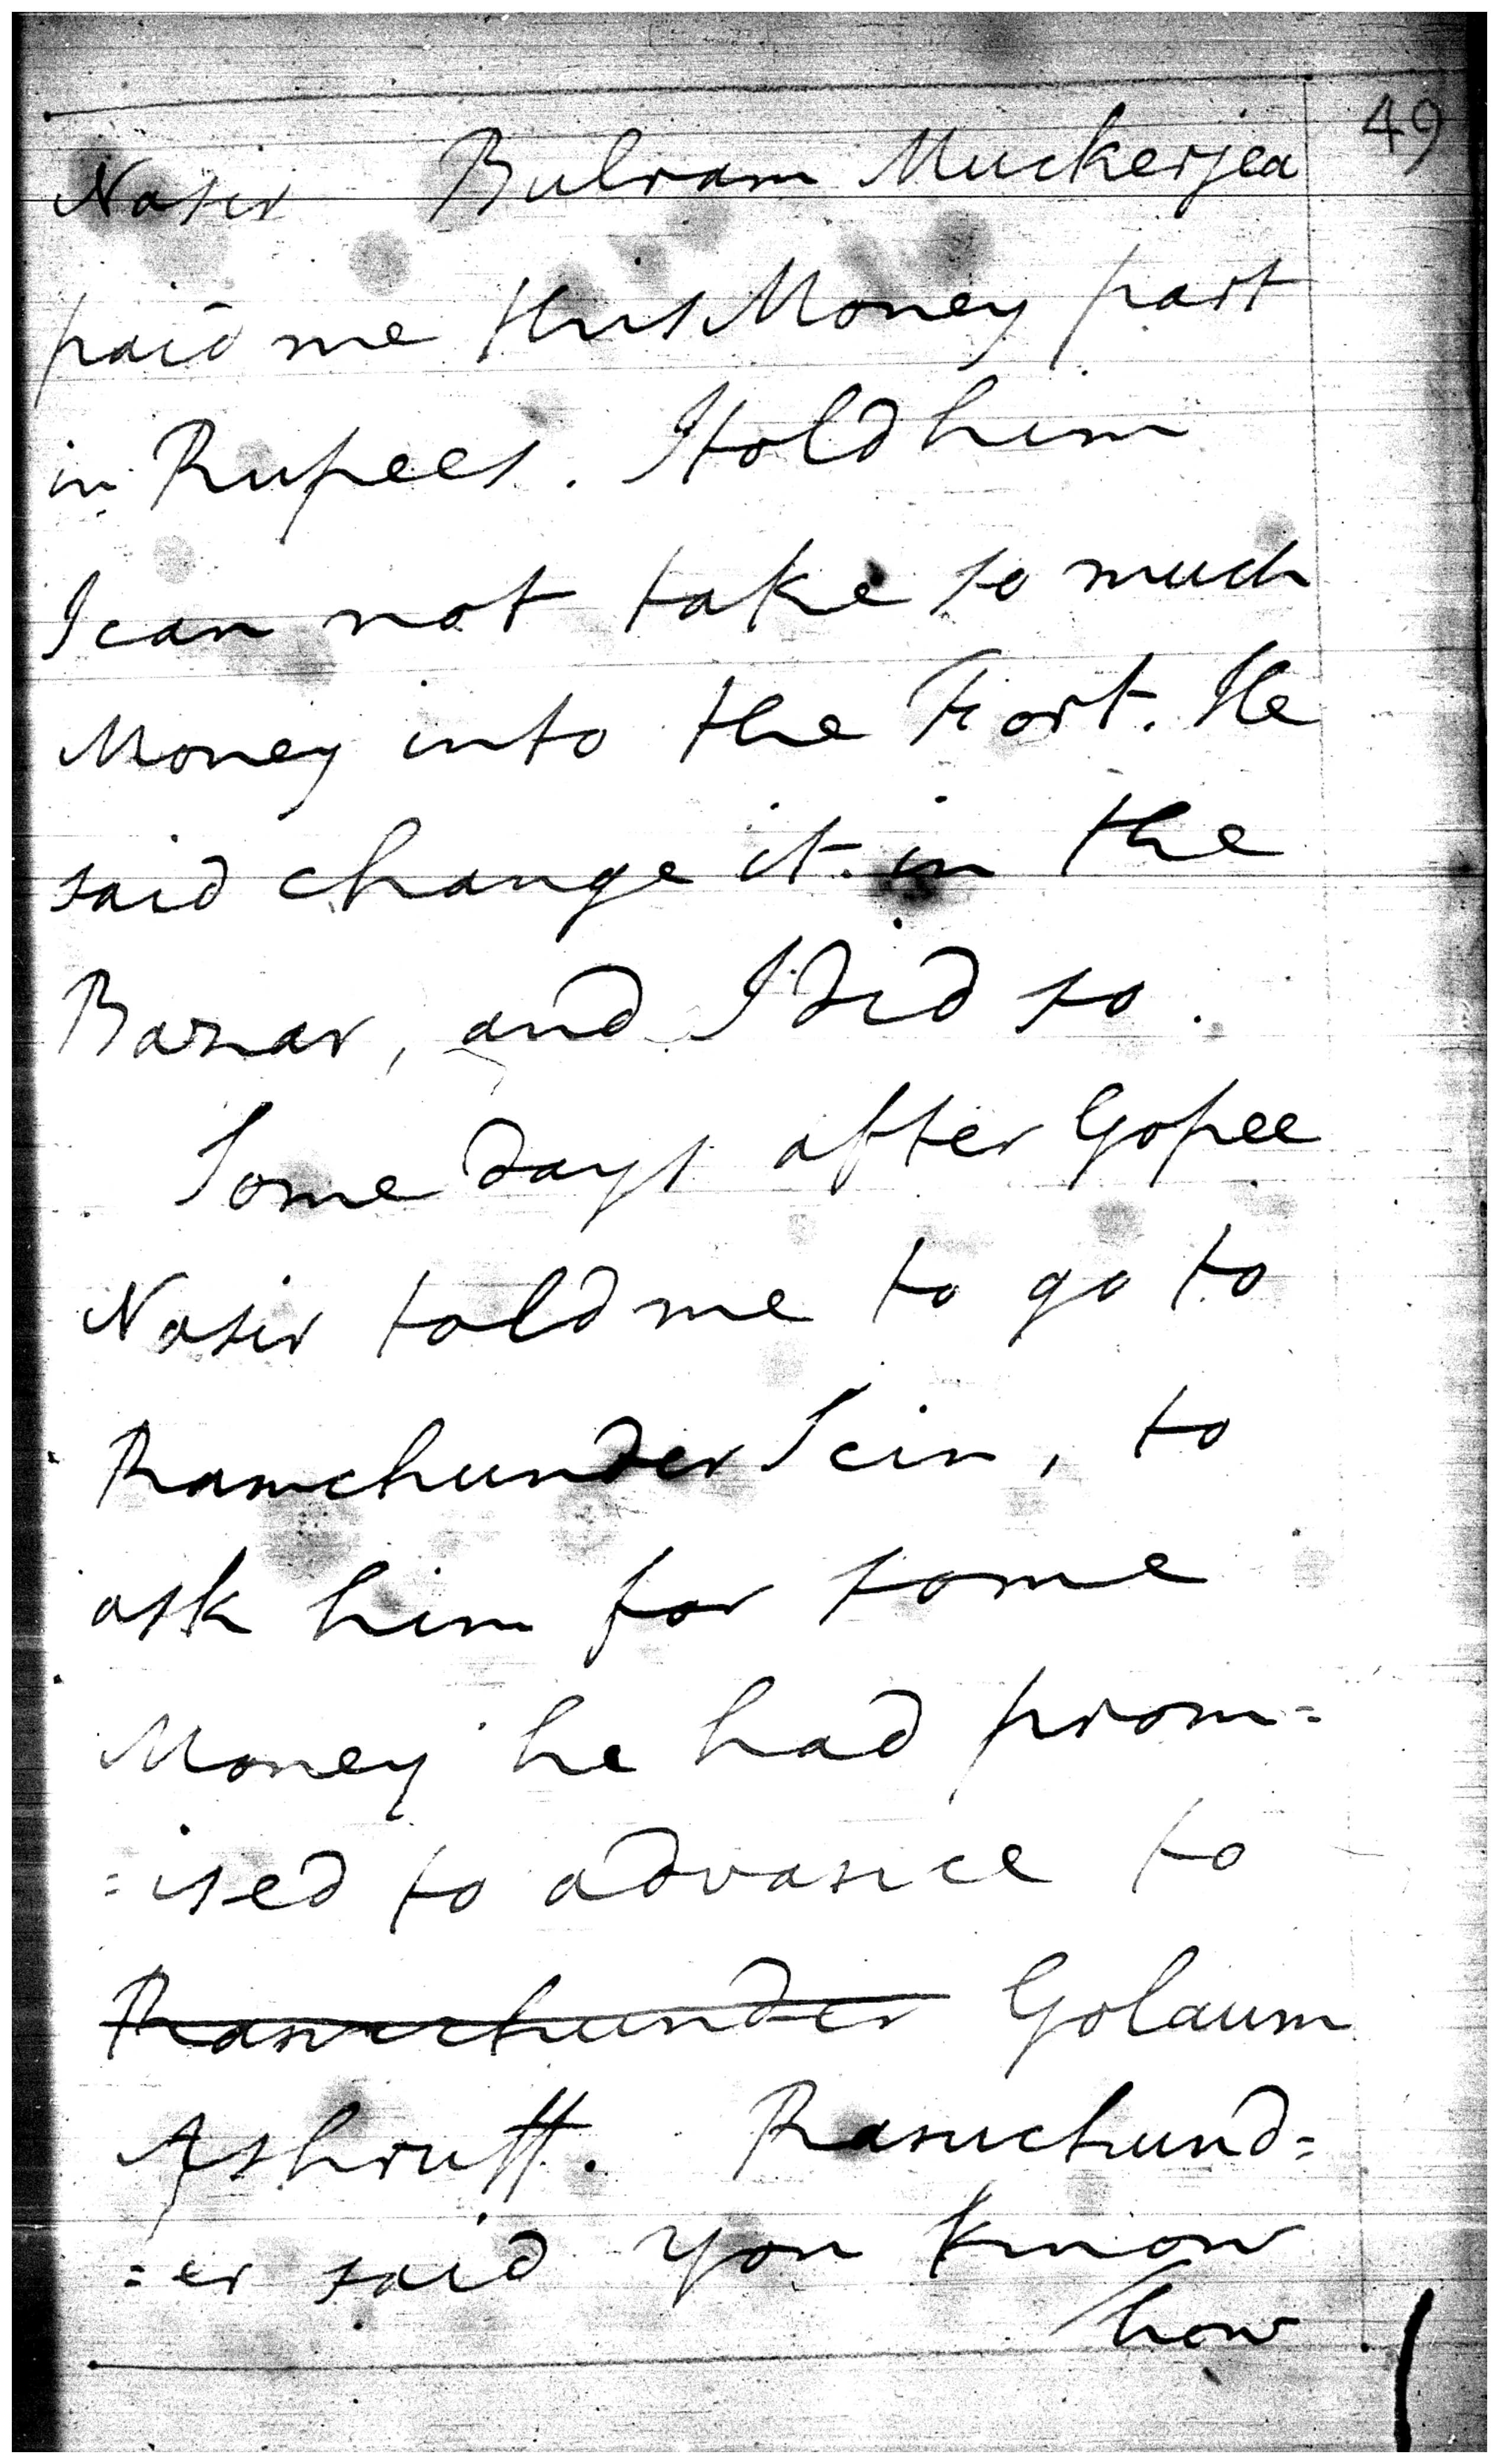 49
Nasir Bulram Muckerjea
paid me this Money part
in Rupees. I told him
I can not take so much
Money into the Fort. He
said change it in the
Bazar, and I did so.
Some days after Gopee
Nasir told me to go to
Ramchunder Sein, to
ask him for some
Money he had prom=
=ised to advance to
Ramchunder Golaum
Ashruff. Ramchund=
=er said you know
how